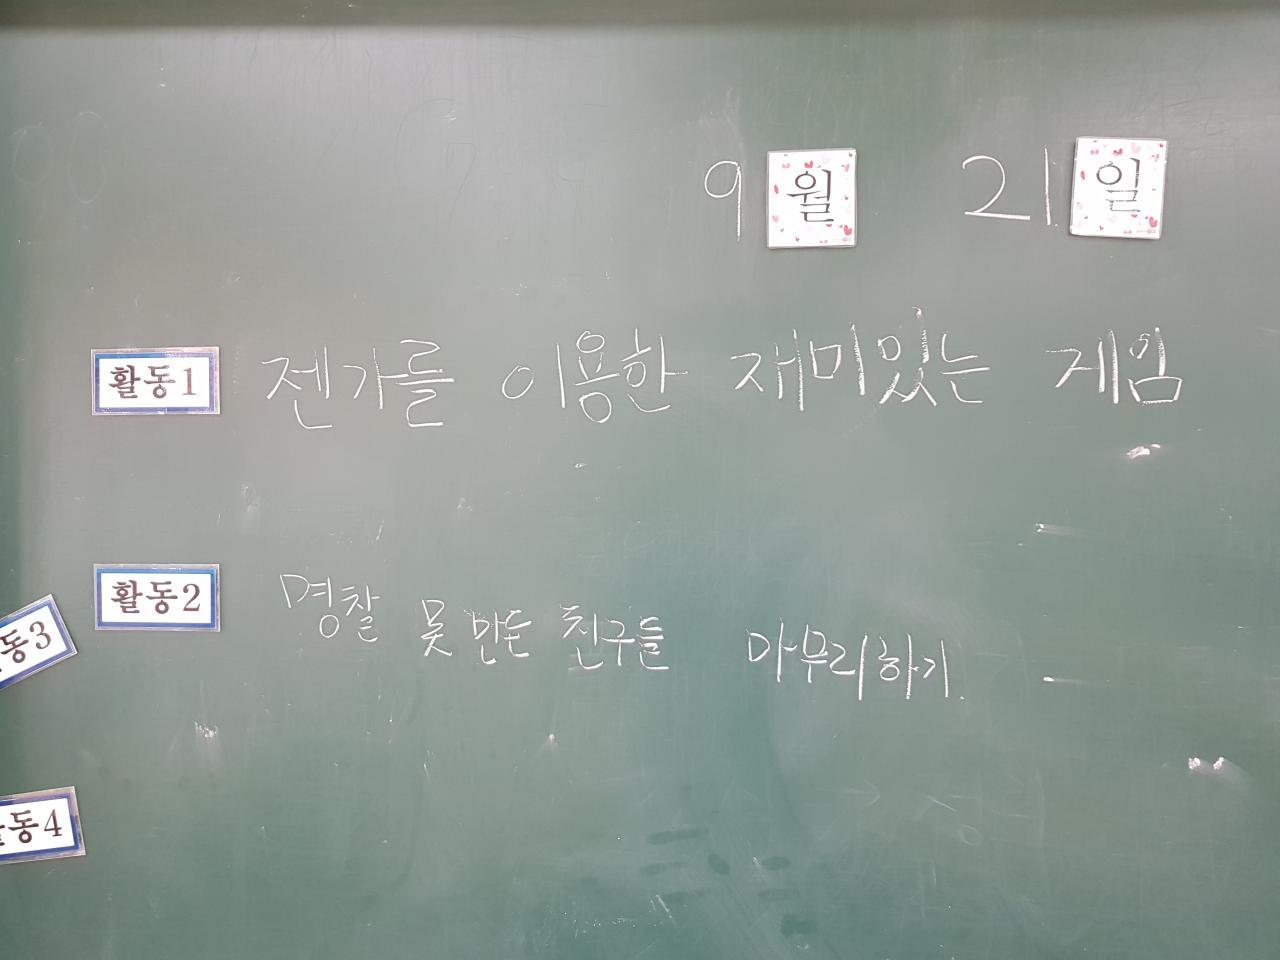 9월 21일
활동1 젠가를 이용한 재미있는 게임
활동2 명찰 못 만든 친구들 마무리하기.
동3
동4